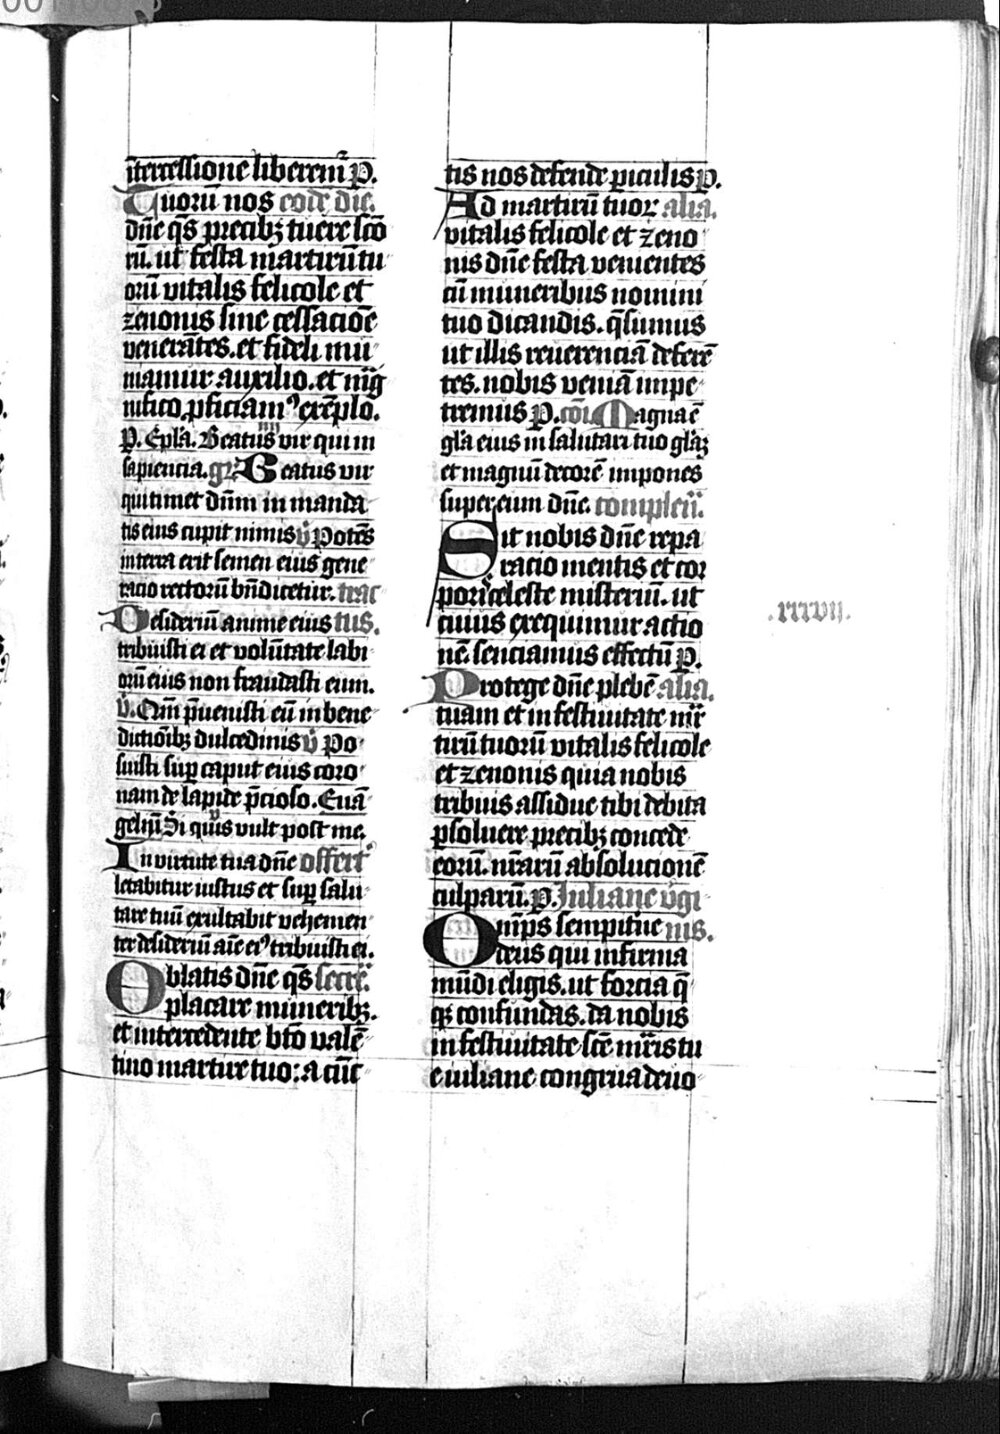 int̄ercessione liberem̄ P.
Tuorū nos eodē die.
dn̄e qs̄ precibꝫ tuere sc̄o
rū. ut festa martirū tu
orū vitalis felicole et
zenonis sine cessacioē
venerātes. et fideli mu
niamur auxilio. et maḡ
nifico ꝓficiamꝰ exēplo.
P. Epl̄a. Beatus vir qui in
sapiencia. gr̄ Beatus vir
qui timet dn̄m in manda
tis eius cupit nimis v̄ Potēs
in terra erit semen eius gene
racio rectorū bn̄dicetur. trac
Desideriū anime eius tus.
tribuisti ei et volūtate labi
orū eius non fraudasti eum.
v̄. Qm̄ p̄uenisti eū in bene
dictiōibꝫ dulcedinis v̄ Po
suisti suꝑ caput eius coro
nam de lapide p̄cioso. Euā
geliū Si quis vult post me.
In virtute tua dn̄e offert̄
letabitur iustus et suꝑ salu
tare tuū exultabit vehemen
ter desideriū aīe eiꝰ tribuisti ei.
Oblatis dn̄e qs̄ secr̄.
placare muneribꝫ.
et intercedente bt̄o valē
tino martire tuo: a cūc
tis nos defende ꝑiculis P.
Ad martirū tuoꝝ alia.
vitalis felicole et zeno
nis dn̄e festa venientes
cū muneribus nomini
tuo dicandis. q̄sumus
ut illis reuerenciā deferē
tes. nobis veniā impe
tremus P. cōi Magna ē
gl̄a eius in salutari tuo gl̄aꝫ
et magnū decorē impones
super eum dn̄e. complen̄.
Sit nobis dn̄e repa
racio mentis et cor
poris celeste misteriū. ut
cuius exequimur actio
nē senciamus effectū P.
Protege dn̄e plebē alia.
tuam et in festiuitate mr̄
tirū tuorū vitalis felicole
et zenonis quia nobis
tribuis assidue tibi debita
ꝑsoluere precibꝫ concede
eorū. nr̄arū absolucionē
culparū. P. Juliane v̄gi
Om̄ps sempitn̄e nis.
deus qui infirma
mūdi eligis. ut forcia q̄
qꝫ confundas. da nobis
in festiuitate sc̄e mr̄is tu
e iuliane congrua deuo
.xxxvii.